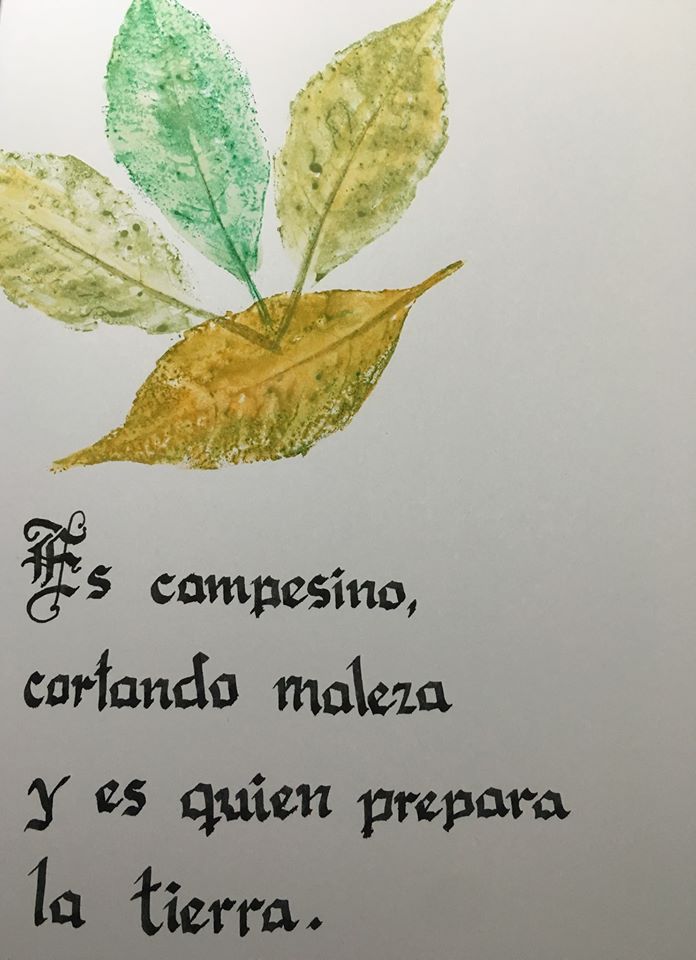 Es campesino,
cortando maleza
y es quien prepara
la tierra.